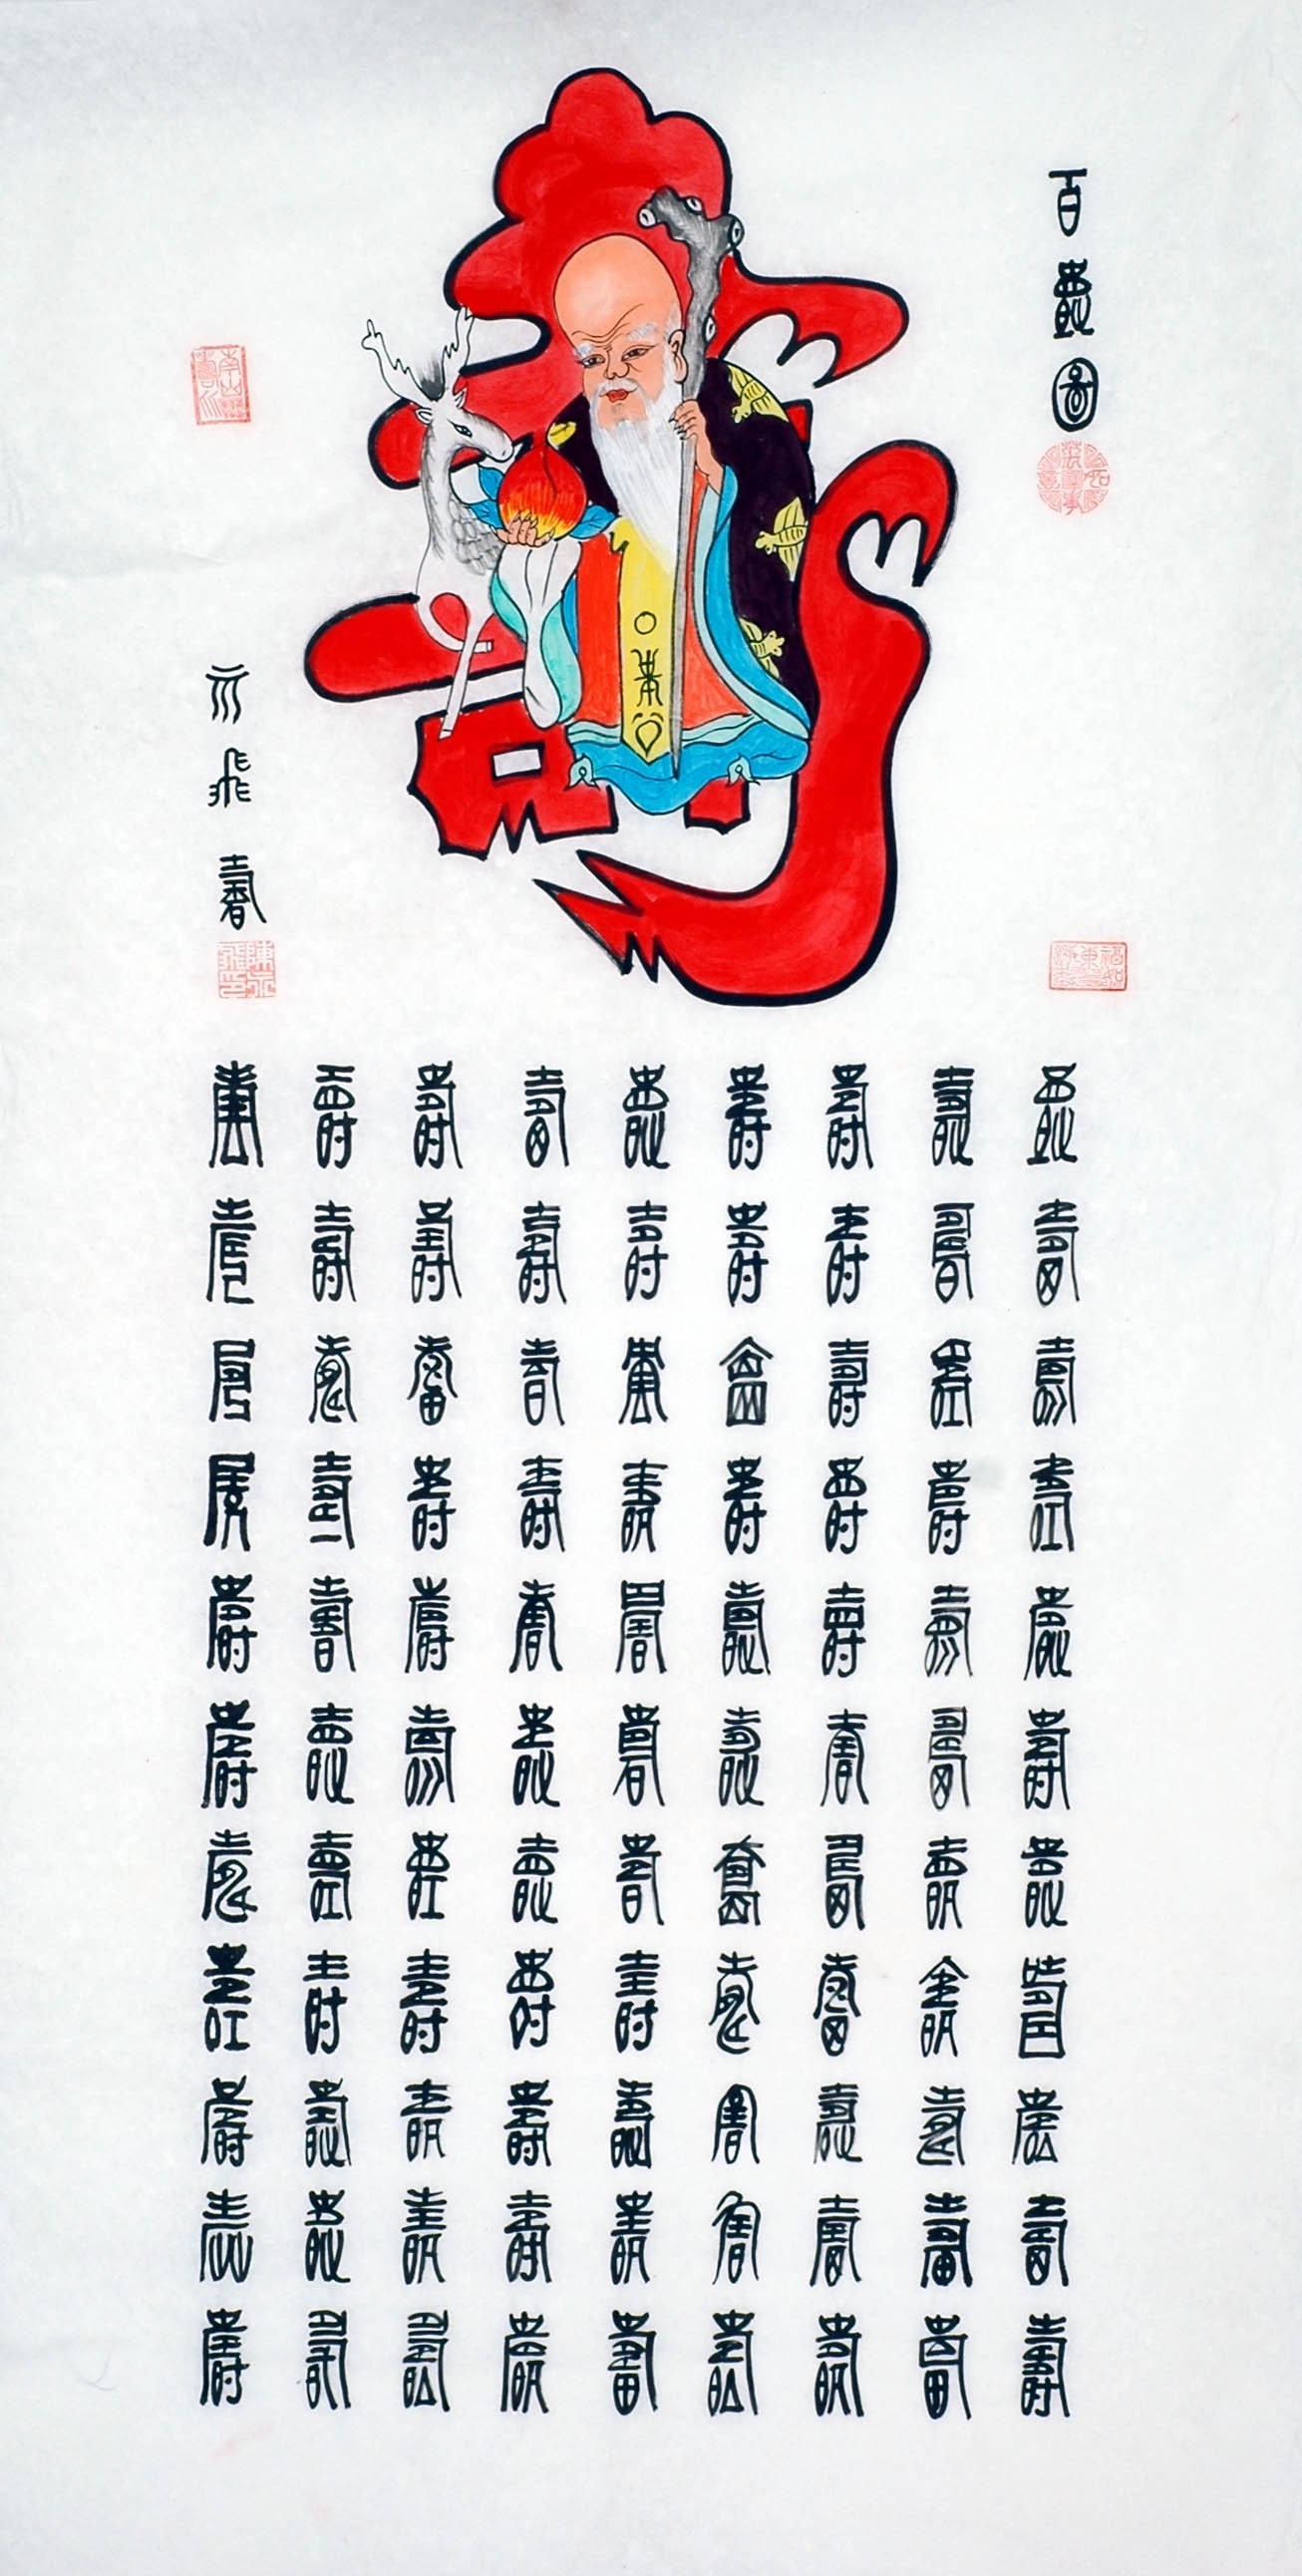 百壽圖
壽
飛書
壽壽壽壽壽壽壽壽壽壽壽
壽壽壽壽壽壽壽壽壽壽壽
壽壽壽壽壽壽壽壽壽壽壽
壽壽壽壽壽壽壽壽壽壽壽
壽壽壽壽壽壽壽壽壽壽壽
壽壽壽壽壽壽壽壽壽壽壽
壽壽壽壽壽壽壽壽壽壽壽
壽壽壽壽壽壽壽壽壽壽壽
壽壽壽壽壽壽壽壽壽壽壽